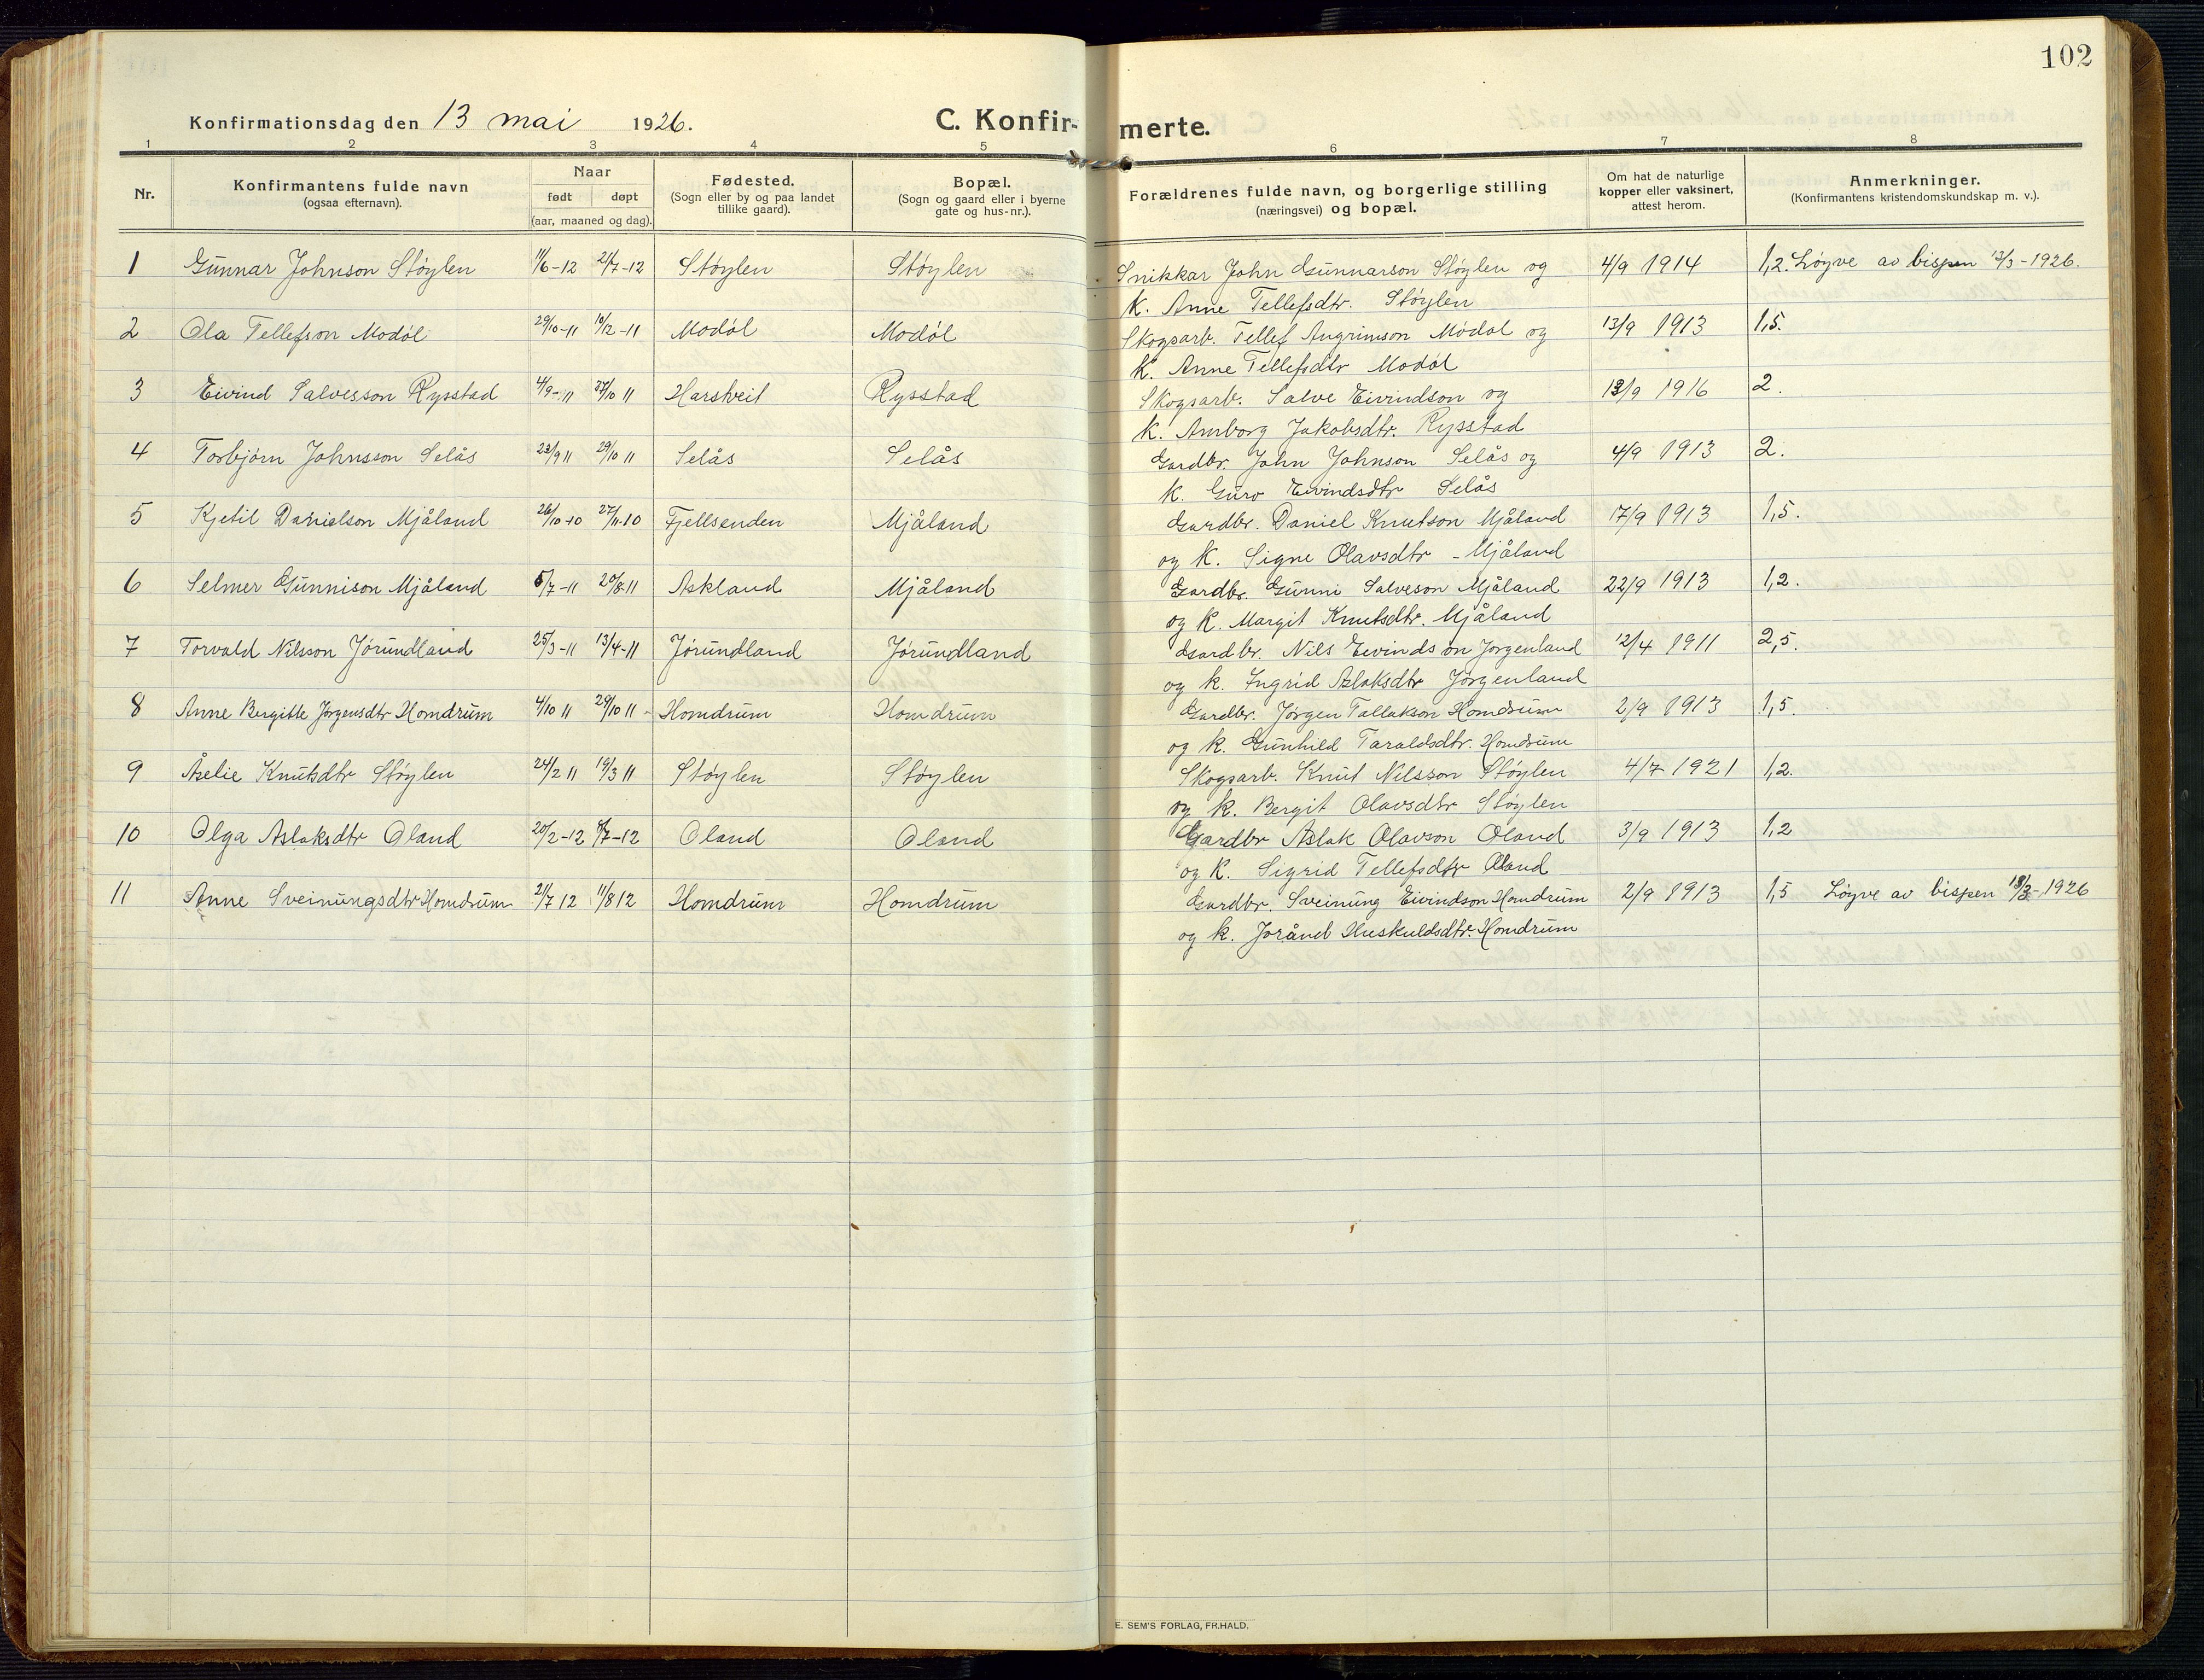 102
Konfirmationsdag den 13 mai 1926.
C. Konfir-merte.
1 2 3 4 5 6 7 8
Nr.
Konfirmantens fulde navn
(ogsaa efternavn).
Naar
født døpt
(aar, maaned og dag).
Fødested.
(Sogn eller by og paa landet
tillike gaard).
Bopæl.
(Sogn og gaard eller i byerne
gate og hus-nr.).
Forældrenes fulde navn, og borgerlige stilling
(næringsvei) og bopæl.
Om hat de naturlige
kopper eller vaksinert,
attest herom.
Anmerkninger.
(Konfirmantens kristendomskundskap m. v.).
1 Gunnar Johnson Støylen 11/6-12 21/7-12 Støylen Støylen Snikkar John Gunnarson Støylen og 4/9 1914 1,2. Løyve av bispen 13/3-1926.
k. Anne Tellefsdtr. Støylen
2 Ola Tellefson Modøl 29/10-11 10/12-11 Modøl Modøl Skogsarb. Tellef Angrimson Modøl og 13/9 1913 1,5.
k. Anne Tellefsdtr Modøl
3 Eivind Salvesson Rysstad 4/9-11 27/10 11 Harstveit Rysstad Skogsarb. Salve Eivindson og 13/9 1916 2.
k. Anborg Jakobsdtr. Rysstad
4 Torbjørn Johnsson Selås 23/9 11 29/10 11 Selås Selås Gardbr. John Johnson Selås og 4/9 1913 2.
k. Guro Eivindsdtr Selås
5 Kjetil Danielson Mjåland 26/10 10 27/11-10 Fjellsenden Mjåland Gardbr. Daniel Knutson Mjåland 17/9 1913 1,5.
og k. Signe Olavsdtr - Mjåland
6 Selmer Gunnison Mjåland 5/7-11 20/8-11 Askland Mjåland Gardbr. Gunni Salveson Mjåland 22/9 1913 1,2.
og k. Margit Knutsdtr. Mjåland
7 Torvald Nilsson Jørundland 25/3-11 13/4-11 Jørundland Jørundland Gardbr. Nils Eivindson Jørgenland 12/4 1911 2,5.
og k. Ingrid Aslaksdtr Jørgenland
8 Anne Bergitte Jørgensdtr Homdrum 4/10 11 29/10 11 - Homdrum Homdrum Gardbr. Jørgen Tallakson Homdrum 2/9 1913 1,5.
og k. Gunhild Taraldsdtr. Homdrum
9 Åselie Knutsdtr Støylen 24/2 11 19/3 11 Støylen Støylen Skogsarb. Knut Nilsson Støylen 4/7 1921 1,2.
og k. Bergit Olavsdtr Støylen
10 Olga Aslaksdtr Oland 20/2-12 /7-12 Oland Oland Gardbr Aslak Olavson Oland 3/9 1913 1,2
og k. Sigrid Tellefsdtr Oland
11 Anne Sveinungsdtr Homdrum 21/7 12 11/8 12 Homdrum Homdrum Gardbr. Sveinung Eivindson Homdrum 2/9 1913 1,5 Løyve av bispen 18/3-1926
og k. Jorånd Huskuldsdtr. Homdrum
E. SEM'S FORLAG, FR.HALD.